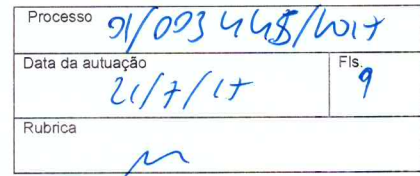 Processo 01/003448/2017
Data da autuação Fls.
21/7/17 9
Rubrica